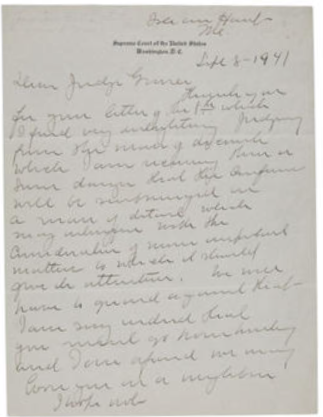 Isle au Haut
Me
Supreme Court of the United States
Washington, D. C.
Sept 8 - 1941
Dear Judge
Thank you
for your letter of the 1st which
I find very Judging
from the mass of
which I am receiving there is
some danger that the Conference
will be submerged in
a mass of detail which
may interfere with the
consideration of more important
matters to which it should
give its attention. We will
have to guard against that.
I am very sorry indeed that
you
and I am afraid we may
lose you as a neighbor.
I hope not